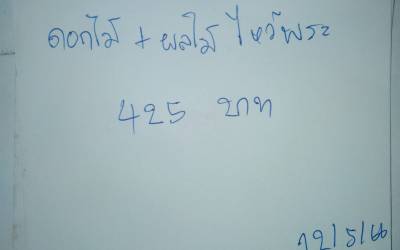 ดอกไม้ + ผลไม้ ไหว้พระ
425 บาท
12/5/66